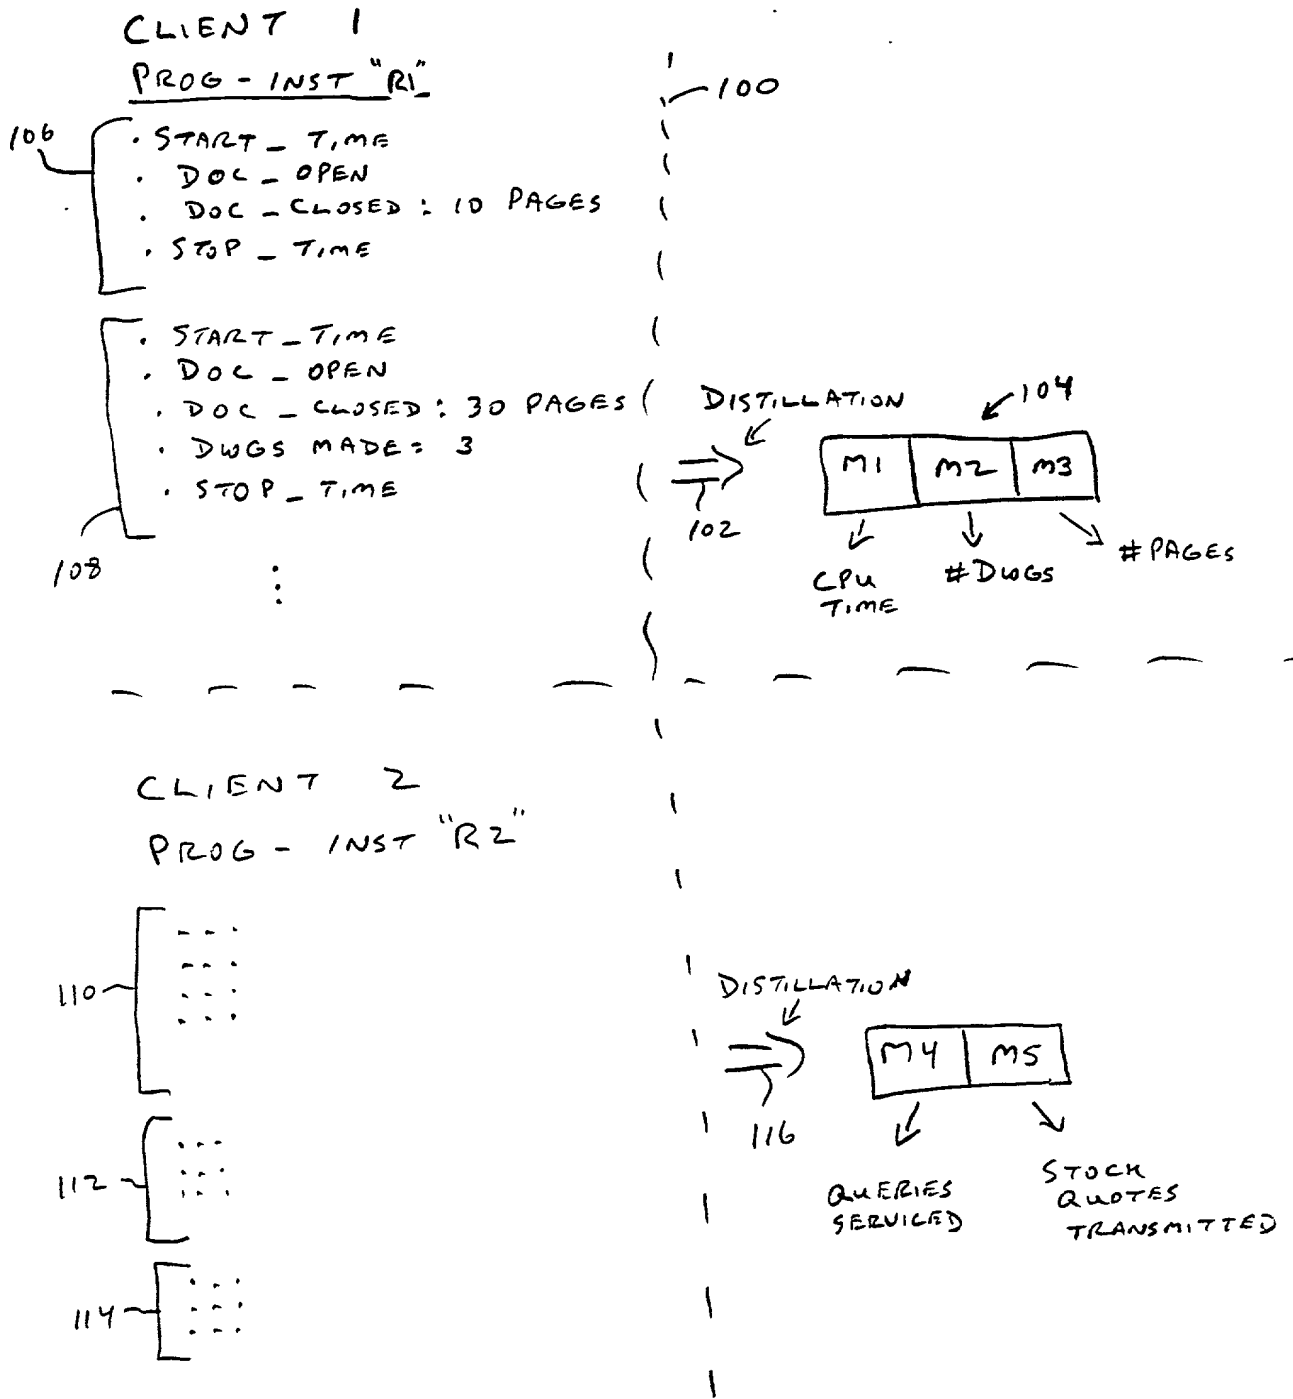 CLIENT 1
PROG - INST "R1"
100
106
. START _ TIME
. DOC _ OPEN
. DOC _ CLOSED : 10 PAGES
. STOP _ TIME
. START _ TIME
. DOC _ OPEN
. DOC _ CLOSED : 30 PAGES
. DWGS MADE = 3
. STOP _ TIME
108
DISTILLATION
104
M1 M2 M3
102
CPU
TIME
#DWGS
#PAGES
CLIENT 2
PROG - INST "R2"
110
112
114
DISTILLATION
M4 M5
116
QUERIES
SERVICED
STOCK
QUOTES
TRANSMITTED